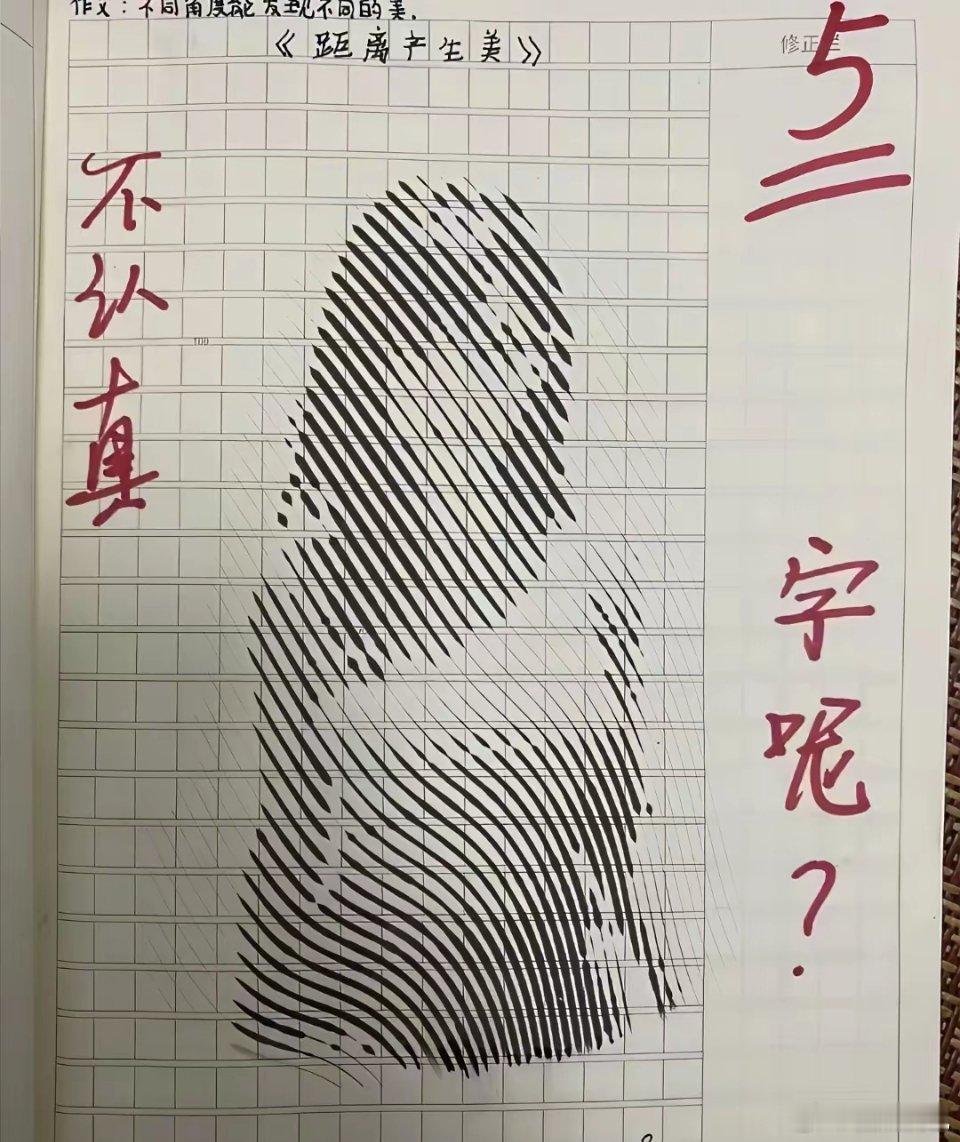 作文：不同角度能发现不同的美.
《距离产生美》
修正栏
5
不认真
100
字呢？